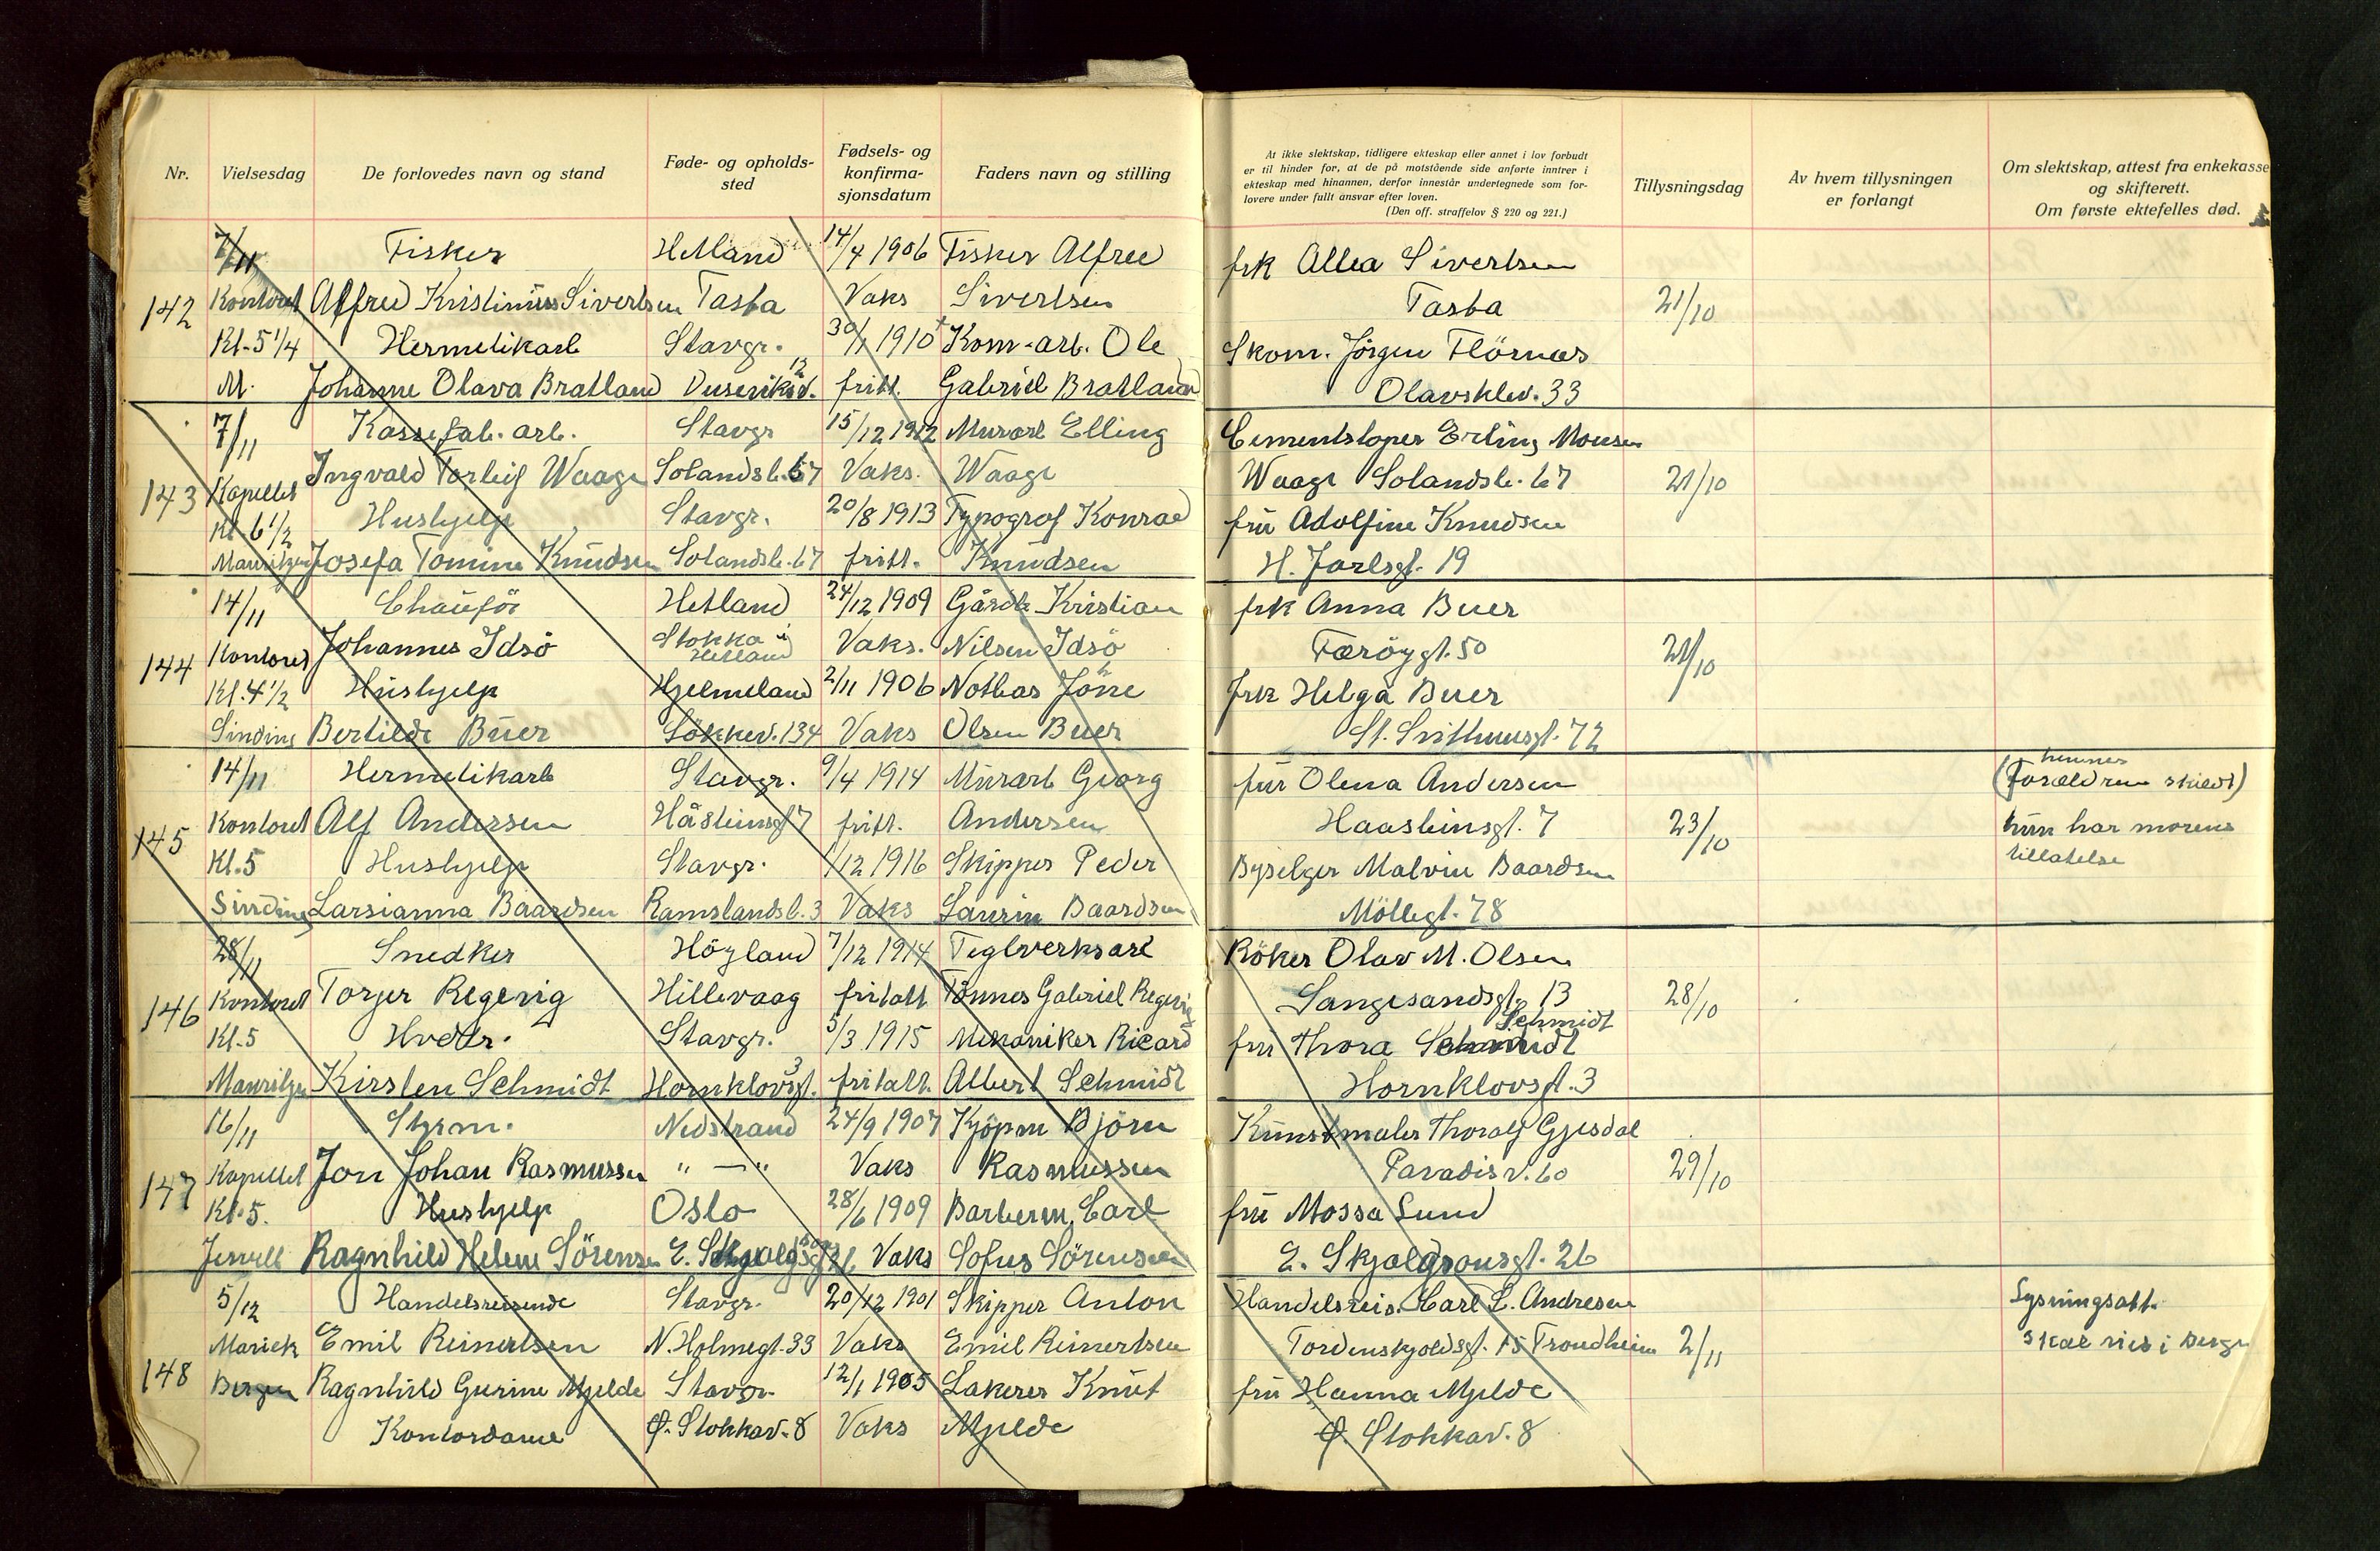 Nr. Vielsesdag De forlovedes navn og stand Føde- og opholds-sted Fødsels- og konfirma-sjonsdatum Faders navn og stilling
At ikke slektskap, tidligere ekteskap eller annet i lov forbudt
er til hinder for, at de på motstående side anførte inntrer i
ekteskap med hinannen, derfor innestår undertegnede som for-
lovere under fullt ansvar efter loven.
(Den off. straffelov § 220 og 221.)
Tillysningsdag
Av hvem tillysningen
er forlangt
Om slektskap, attest fra enkekasse
og skifterett.
Om første ektefelles død.
7/11 Fisker Hetland 14/4 1906 Fisker Alfred
142 Kontoret Alfred Kristinius Sivertsen Tasta Vaks Sivertsen
Kl. 5 1/4 Hermetikarb Stavgr. 30/1 1910 Kom-arb. Ole
M. Johanne Olava Bratland 12 fritt. Gabriel Bratland
7/11 Kassefab. arb. Stavgr 15/12 1912 Murarb Elling
143 Kapellet Ingvald Torleif Waage Solandsb. 67 Vaks. Waage
Kl. 6 1/2 Hushjelp Stavgr. 20/8 1913 Typograf Konrad
Mauritzen Josefa Tomine Knudsen Solandsb. 67 fritt. Knudsen
14/11 Chauför Hetland 24/12 1909 Gårdb Kristian
144 Kontoret Johannes Idsö Stokka i Hetland Vaks. Nilsen Idsö
Kl. 4 1/2 Hushjelp Hjelmeland 2/11 1906 Notbas Jöne
Sinding Bertilde Buer Lökkev. 134 Vaks Olsen Buer
14/11 Hermetikarb Stavgr. 9/4 1914 Murarb Georg
145 Kontoret Alf Andersen Håsteinsgt 7 fritt. Andersen
Kl. 5 Hushjelp Stavgr. 1/12 1916 Skipper Peder
Sinding Larsianna Baardsen Ramslandsb. 3 Vaks Laurin Baardsen
28/11 Snedker Höyland 7/12 1914 Teglverksarb
146 Kontoret Torjer Regevig Hillevaag fritatt Tönnes Gabriel Regevig
Kl. 5 Hvedr. Stavgr. 5/3 1915 Mekaniker Ricard
Mauritzen Kirsten Schmidt Hornklovsgt. 3 fritatt. Albert Schmidt
16/11 Styrm. Nedstrand 24/9 1907 Kjöpm Björn
147 Kapellet Jon Johan Rasmussen " — " Vaks Rasmussen
Kl. 5. Hushjelp Oslo 28/6 1909 Barberm. Carl
Ragnhild Helene Sörensen Vaks Sofus Sörensen
5/12 Handelsreisende Stavgr. 20/12 1901 Skipper Anton
Mariek Emil Reinertsen N. Holmegt. 33 Vaks Emil Reinertsen
148 Bergen Ragnhild Gurine Mjelde Stavgr. 12/1 1905 Lakerer Knut
Kontordame Ø. Stokkav. 8 Vaks Mjelde
frk Allea Sivertsen
Tasta 21/10
Skom. Jörgen Flörnæs
Olavsklev. 33
Cementstöper Erling Monsen
Waage Solandsb. 67 21/10
fru Adolfine Knudsen
H. Jarlsgt. 19
frk Anna Buer
Færöygt. 50 21/10
frk Helga Buer
St. Svithunsgt. 72
fru Olena Andersen
(hennes
Forældrene skildt)
Haasteinsgt. 7 23/10 hun har morens
tillatelse
Byselger Malvin Baardsen
Möllegt. 78
Röker Olav M. Olsen
Langesandsgt. 13 28/10
Schmidt
fru Thora Schmidt
Hornklovsgt. 3
Kunstmaler Thoralf Gjesdal
Paradisv. 60 29/10
fru Mossa Lund
E. Skjalgsonsgt. 26
Handelsreis. Carl L. Andresen Lysningsatt.
Tordenskjoldsgt. 15 Trondheim 2/11 skal vies i Bergen
fru Hanna Mjelde
Ø. Stokkav. 8